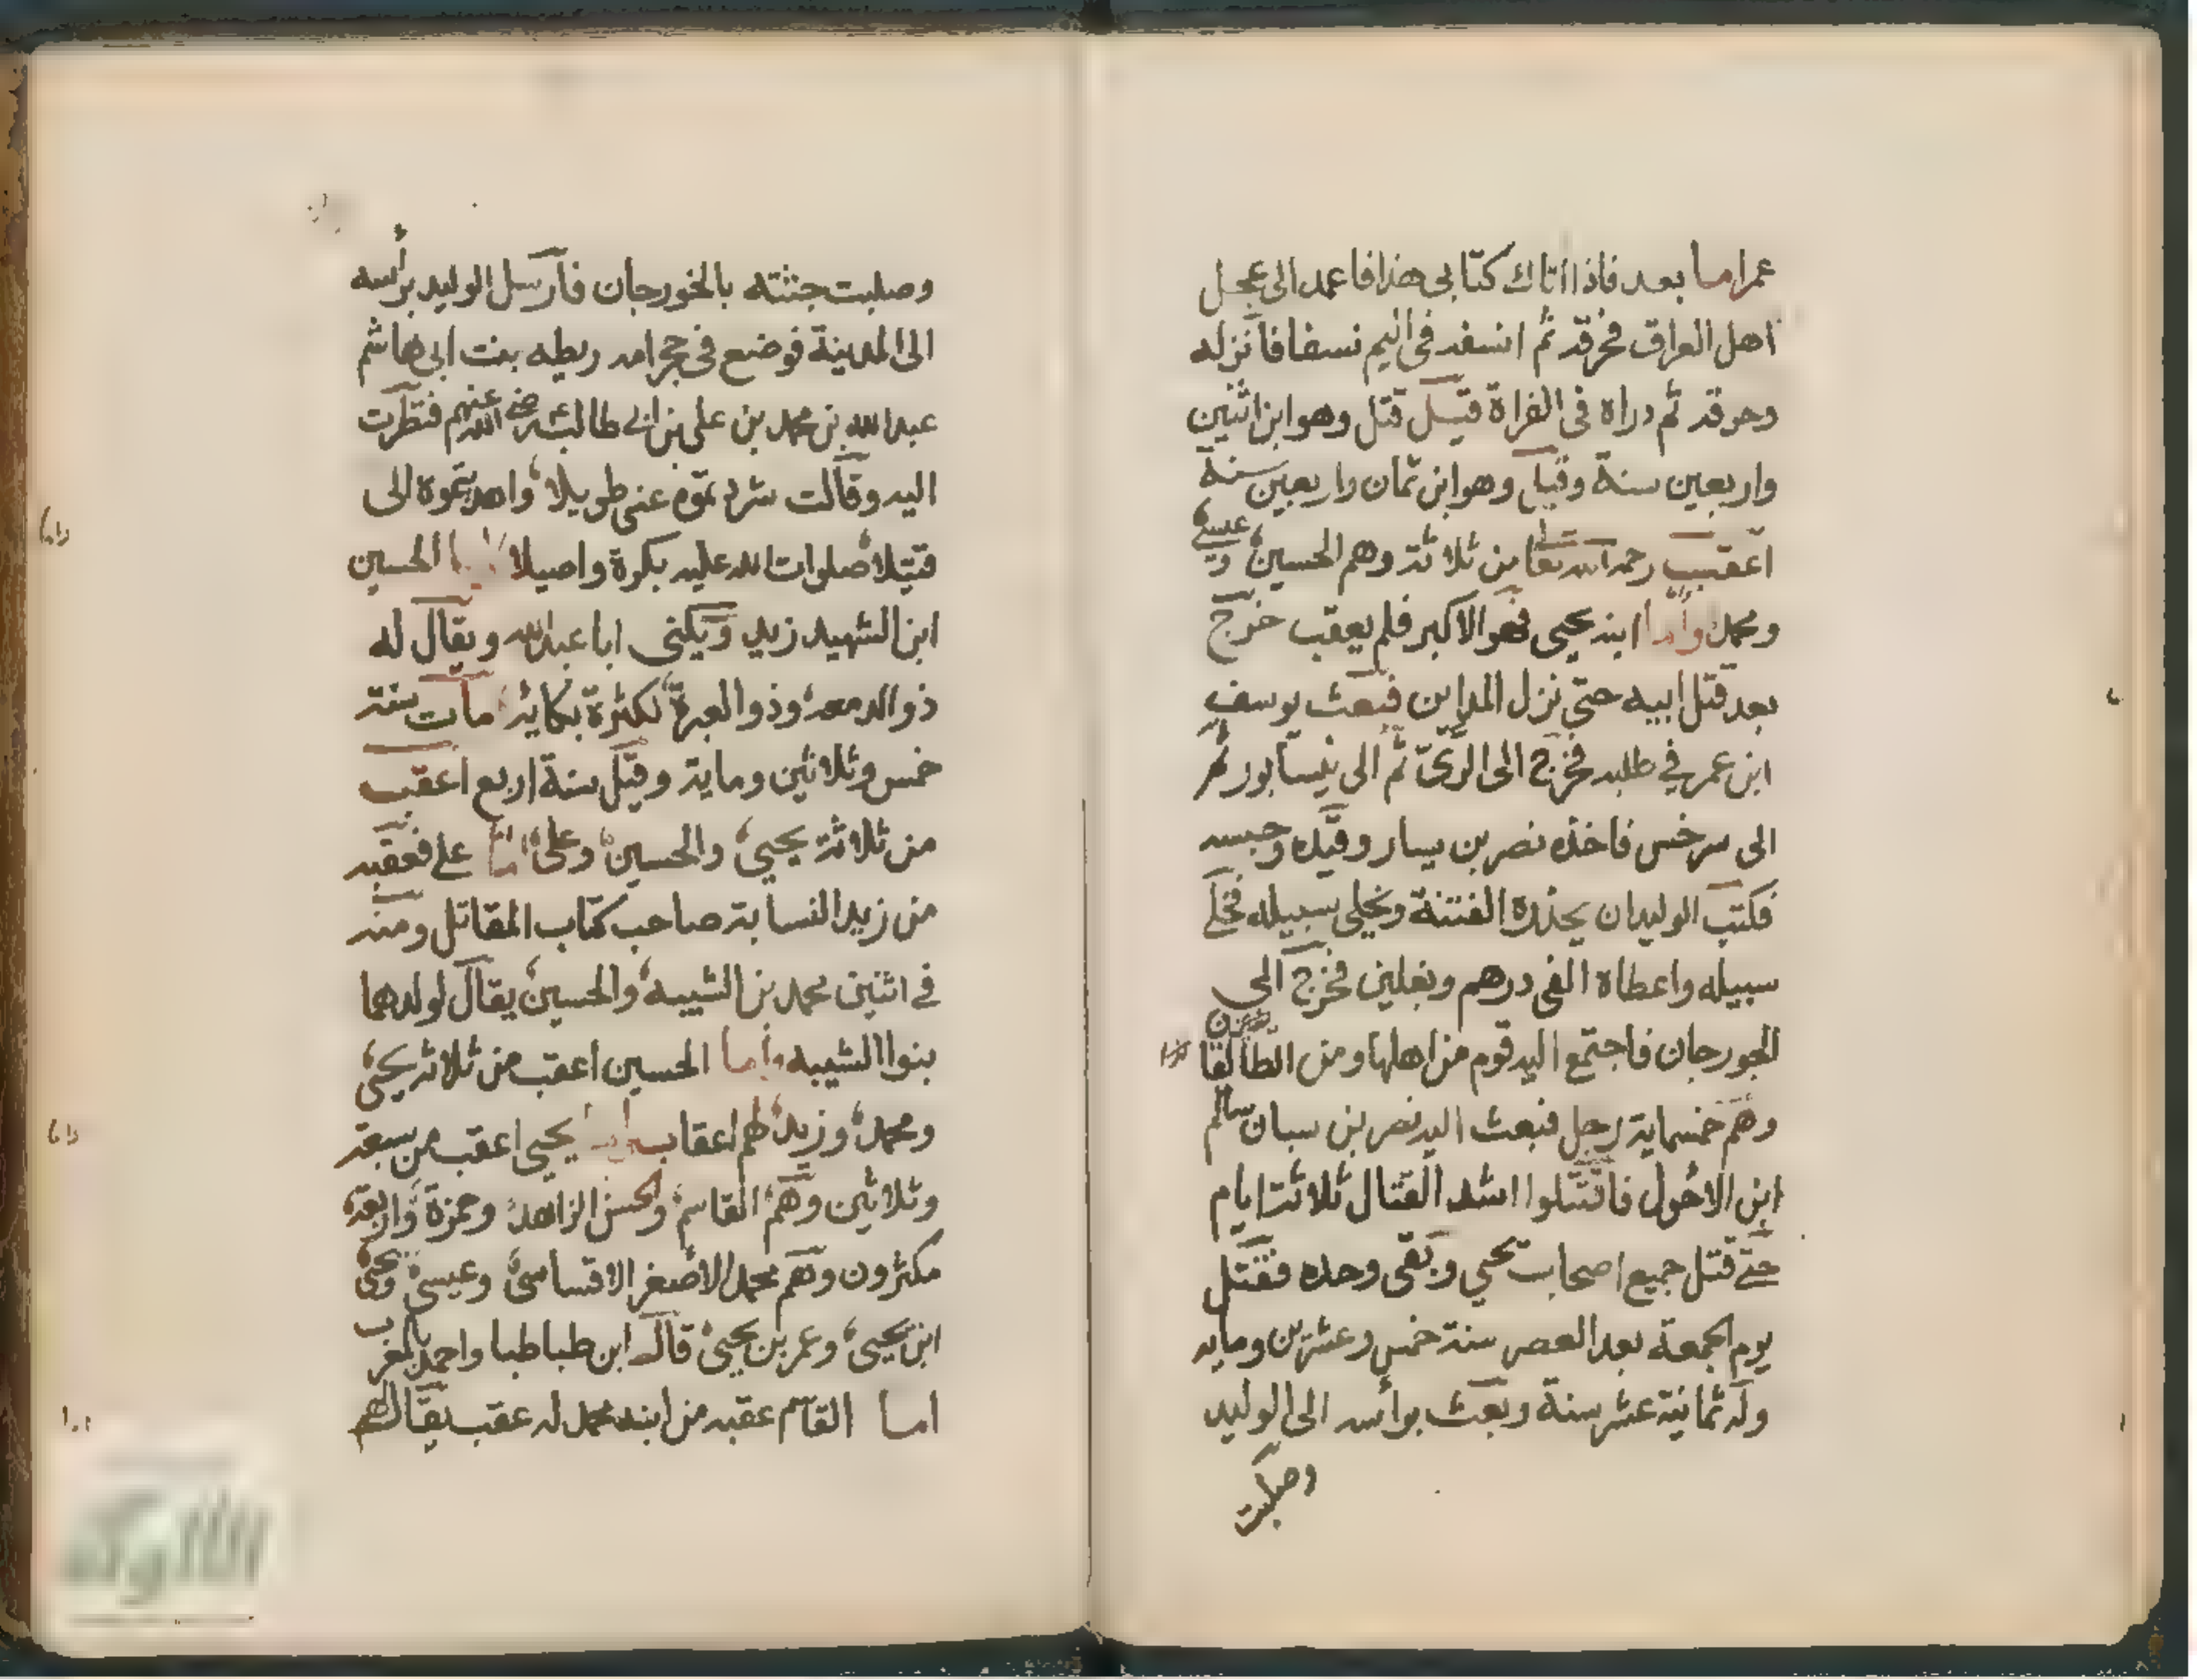 عمر اما بعد فاذا اتاك كتابى هذا فاعمد الى عجل
اهل العراق فحرقه ثم انسفه فى اليم نسفا فانزله
وحرقه ثم دراه فى الفراة قيل قتل وهو ابن اثنين
واربعين سنة وقيل وهو ابن ثمان واربعين سنة
اعقب رحمه الله تعا من ثلاثة وهم الحسين وعيسى
ومحمد واما ابنه يحيى فهو الاكبر فلم يعقب خرج
بعد قتل ابيه حتى نزل المداين فبعث يوسف
ابن عمر في طلبه فخرج الى الرى ثم الى نيسابور ثم
الى سرخس فاخذه نصر بن يسار وقيده وحبسه
فكتب الوليد ان يحذره الفتنة ويخلى سبيله فخلى
سبيله واعطاه الفى درهم وبغلين فخرج الى
الجورجان فاجتمع اليه قوم من اهلها ومن الطالقا
وهم خمسماية رجل فبعث اليه نصر بن سبان سالم
ابن الاحول فاقتتلوا اشد القتال ثلاثة ايام
حتى قتل جميع اصحاب يحيى وبقى وحده فقتل
يوم الجمعة بعد العصر سنة خمس وعشرين ومايه
وله ثمانية عشر سنة وبعث براسه الى الوليد
وصلبت
وصلبت جثته بالخورجان فارسل الوليد برأسه
الى المدينة فوضع فى حجر امه ريطه بنت ابى هاشم
عبد الله بن محمد بن على بن ابى طالب رضى الله عنهم فنظرت
اليه وقالت شردتموه عنى طويلا واهديتموه الى
قتيلا صلوات الله عليه بكرة واصيلا الحسين
ابن الشهيد زيد ويكنى ابا عبد الله ويقال له
ذو الدمعه وذو العبرة لكثرة بكائه مات سنة
خمس وثلاثين وماية وقيل سنة اربع اعقب
من ثلاثة يحيى والحسين وعلى اما على فعقبه
من زيد النسابة صاحب كتاب المقاتل ومنه
في اثنين محمد بن الشبيه والحسين يقال لولدهما
بنوا الشبيه واما الحسين اعقب من ثلاثه يحيى
ومحمد وزيد لهم اعقاب يحيى اعقب من سبعة
وثلاثين وهم القاسم والحسن الزاهد وحمزة واربعة
مكثرون وهم محمد الاصغر الاقساسى وعيسى ويحيى
ابن يحيى وعمر بن يحيى قال ابن طباطبا واحمد بالمغرب
اما القاسم عقبه من ابنه محمد له عقب يقال لهم